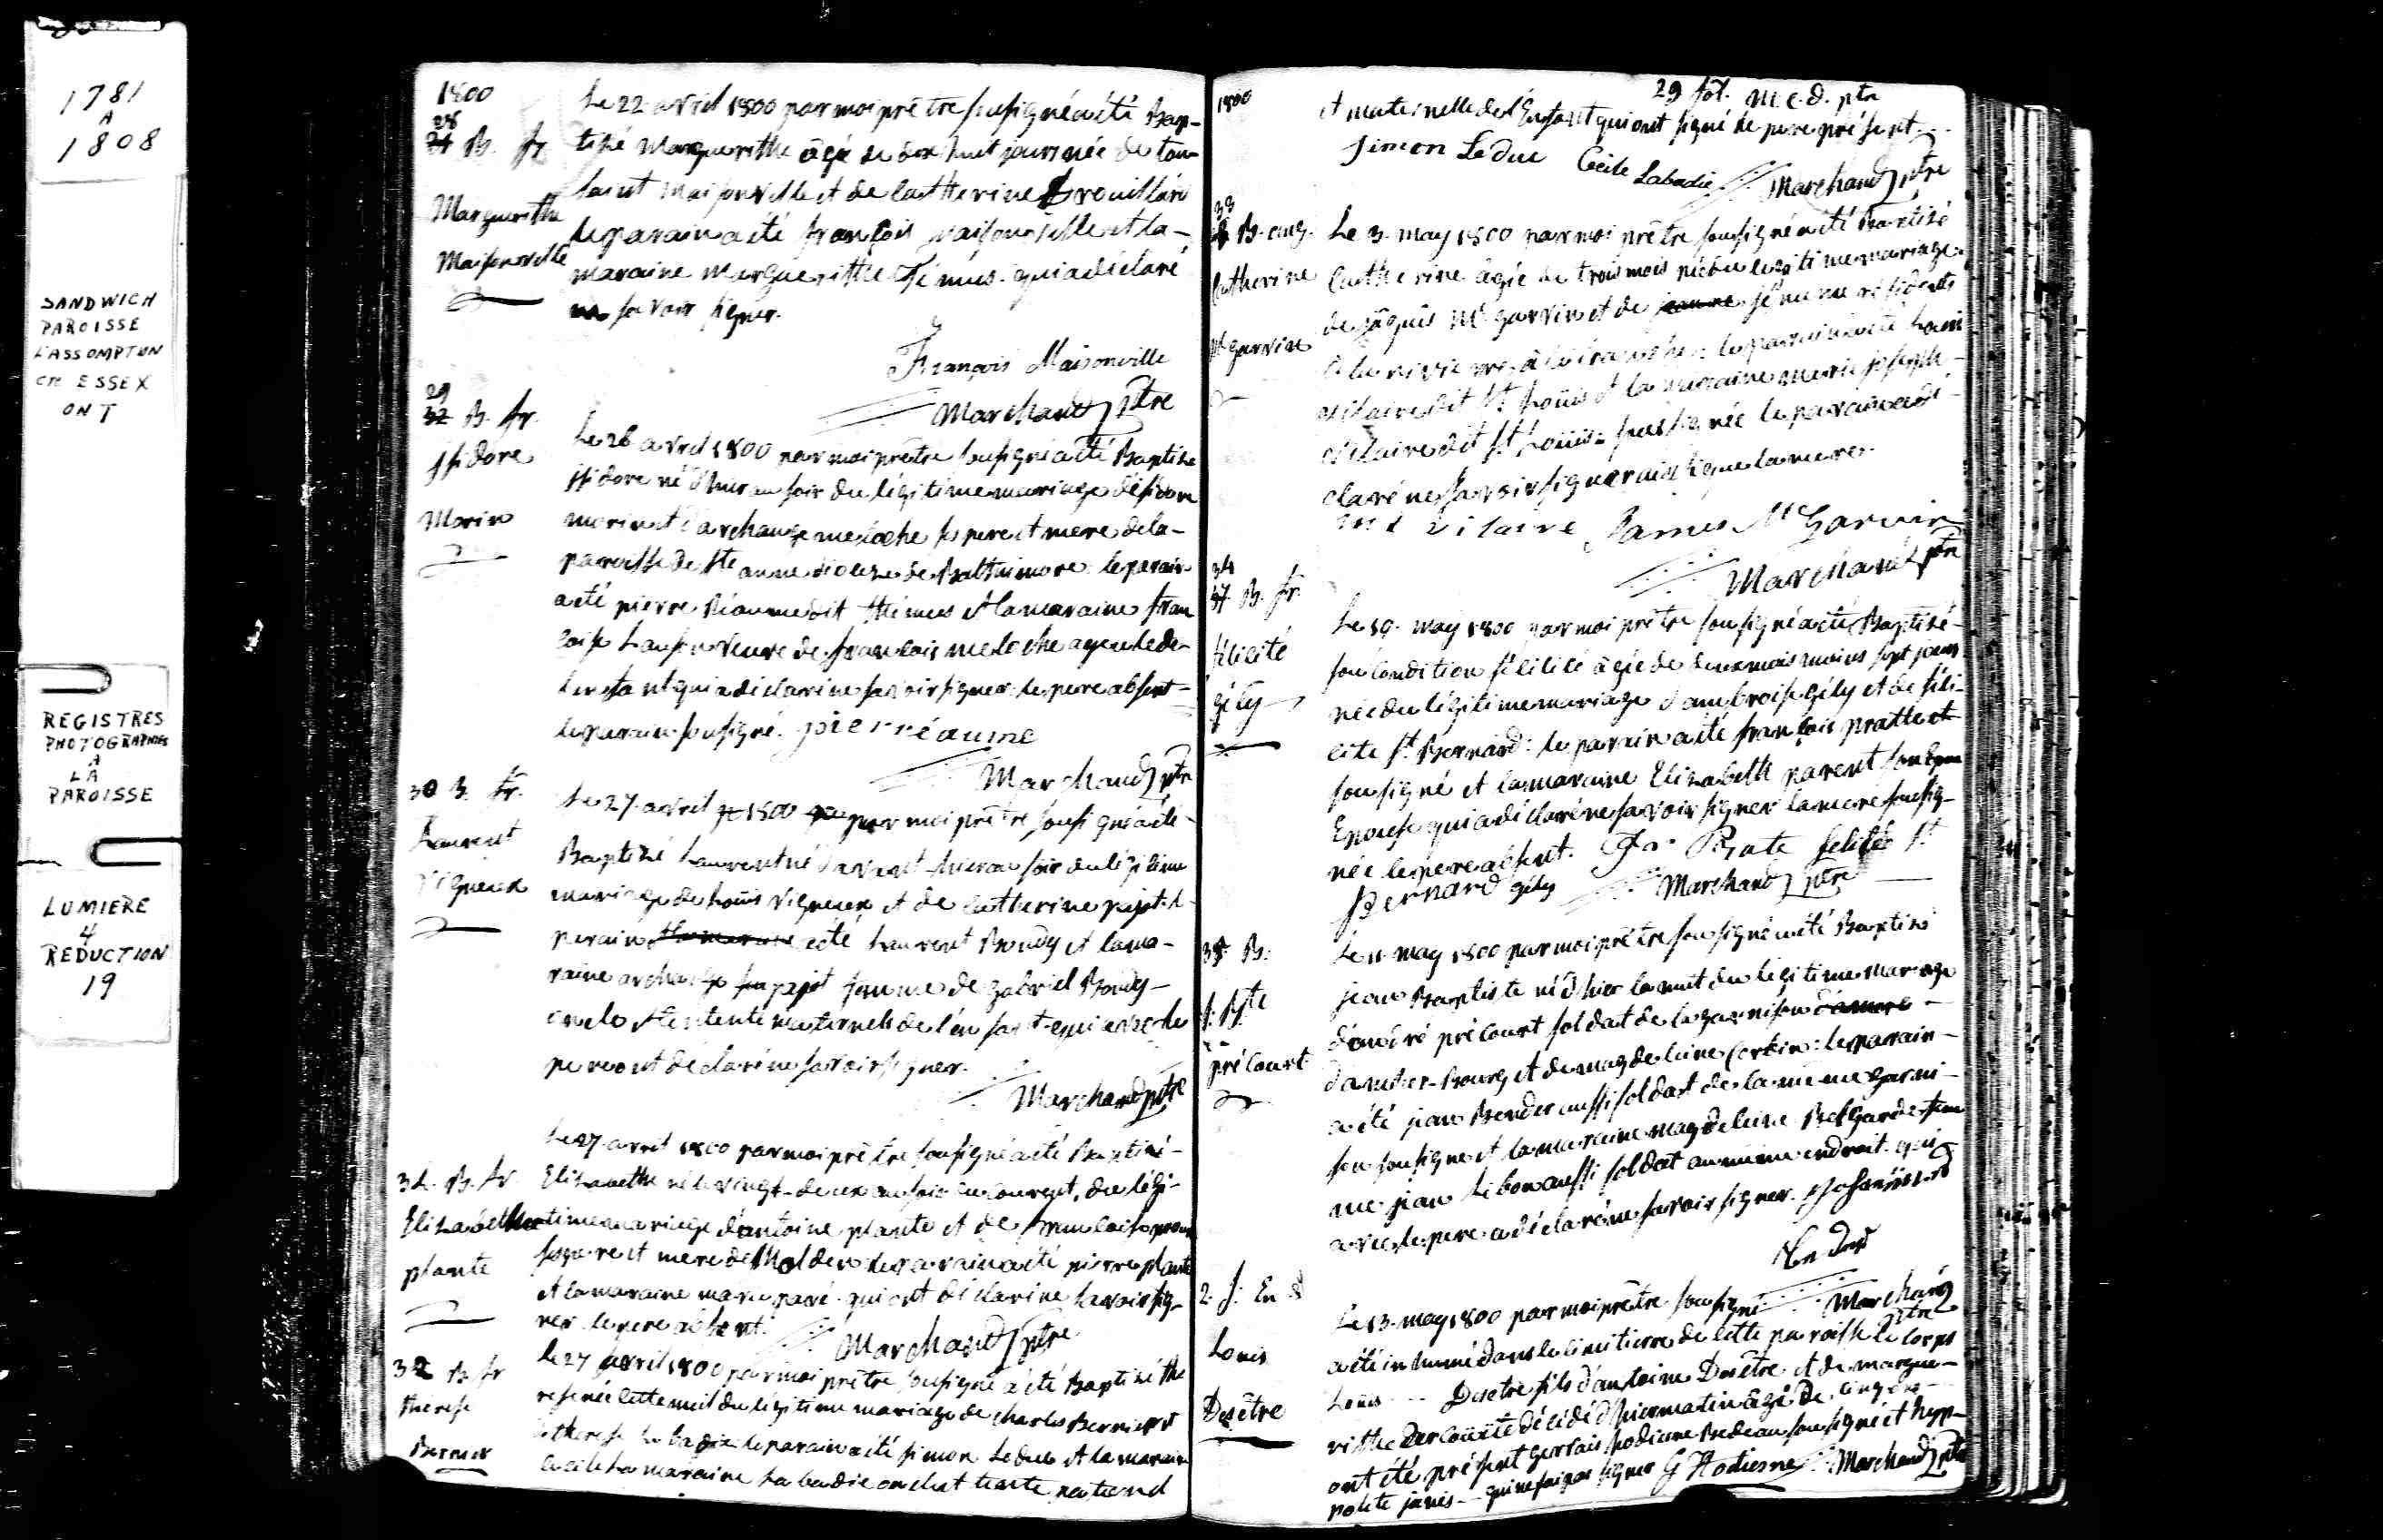 1781
A
1808
SANDWICH
PAROISSE
L'ASSOMPTION
CTE ESSEX
ONT
REGISTRES
PHOTOGRAPHIES
A
LA
PAROISSE
LUMIERE
4
REDUCTION
19
1800
28
B. fr
Marguerithe
Maisonville
Le 22 avril 1800 par moi prêtre soussigné a été Bap-
tisé Marguerithe âgée de dix huit jours née de tou-
saint Maisonville et de Catherine Trouillard
le parain a été françois Maisonville et la
maraine Marguerithe Témus qui a déclaré
ne savoir signer.
François Maisonville
Marchand ptre
29
32 B. fr.
Isidore
Morin
Le 26 avril 1800 par moi prêtre soussigné a été Baptisé
Isidore né d'hier au soir du légitime mariage d'Isidore
morin et d'archange meloche ses pere et mere de la
paroisse de Ste anne diocese de Balthimore le parain
a été pierre Réaume dit thémus et la maraine fran
coise veuve de francois meloche ayeule de
l'enfant qui a déclaré ne savoir signer le pere absent
le parain soussigné. pier réaume
Marchand ptre
30 B. fr.
Laurent
Vigneux
Le 27 avril 1800 par moi prêtre soussigné a été
Baptisé Laurent né d'avant hier au soir du légitime
mariage de Loüis Vigneux et de Catherine pajot le
parain a été Laurent Bondy et la ma-
raine archange pajot femme de gabriel Bondy
oncle et tente maternels de l'enfant qui avec le
pere ont déclaré ne savoir signer.
Marchand ptre
31. B. fr
Elizabethe
plante
Le 27 avril 1800 par moi prêtre soussigné a été Baptisé
Elizabethe né le vingt-deux au soir du courent, du légi-
time mariage d'antoine plante et de francoise
ses pere et mere de Molden le parain a été pierre plante
et la maraine marie paré qui ont déclaré ne savoir sig-
ner le pere absent.
Marchand ptre
32 B. fr
therese
Bernier
le 27 avril 1800 par moi prêtre soussigné a été Baptisé the
rese née cette nuit du légitime mariage de charles Bernier et
de therese La badie le parain a été simon Leduc et la maraine
Cecile La maraine La badie oncle et tente paternel
1800
29 fol. M. C. D. ptre
et maternelle de l'Enfant qui ont signé le pere présent
Simon LeDuc Cecile Labadie Marchand ptre
33
B. ang.
Catherine
Mc garvin
Le 3 may 1800 par moi prêtre soussigné a été Baptisé
Catherine âgée de trois mois née du legitime mariage
de Jâques Mc garvin et de résidents
à la riviere à la tranche: le parain a été Louis
vilaire dit St Loüis et la maraine marie joseph
vilaire dit St Loüis soussignée le parain a dé
claré ne savoir signer ainsi que la mere.
vilaire James McGarvin
Marchand ptre
34
37. B. fr.
félicité
gély
Le 10 may 1800 par moi prêtre soussigné a été Baptisé
sou Condition félicité âgée de deux mois moins sept jours
née du légitime mariage d'ambroise gély et de féli-
cité St Bernard: le parain a été françois pratte et
soussigné et la maraine Elizabeth parent son
Epouse qui a déclaré ne savoir signer la mere soussig-
née le pere absent. Fr Prate felicité St
Bernard gély Marchand ptre
35. B.
J. Bte
précourt
Le 11 may 1800 par moi prêtre soussigné a été Baptisé
jean Baptiste né d'hier la nuit du légitime mariage
d'andré précourt soldat de la garnison
d'amher-Bourg et de magdeleine : le parain
a été jean Bender aussi soldat de la meme garni-
son soussigné et la maraine magdeleine Belgarde fem
me jean Lebon aussi soldat au meme endroit qui
avec le pere a déclaré ne savoir signer. Johannes
Bender
Marchand
ptre
2. S. En
Louis
Desêtre
Le 13 may 1800 par moi prêtre soussigné
a été inhumé dans le cimitierre de cette paroisse le Corps
Louis Desetre fils d'antoine Desêtre et de margue-
rithe décédé d'hier matin âgé de cinq
ont été présent gervais hodienne Bedeau soussigné et hypp-
polite janis qui ne sai pas signer G Hodiesne Marchand ptre